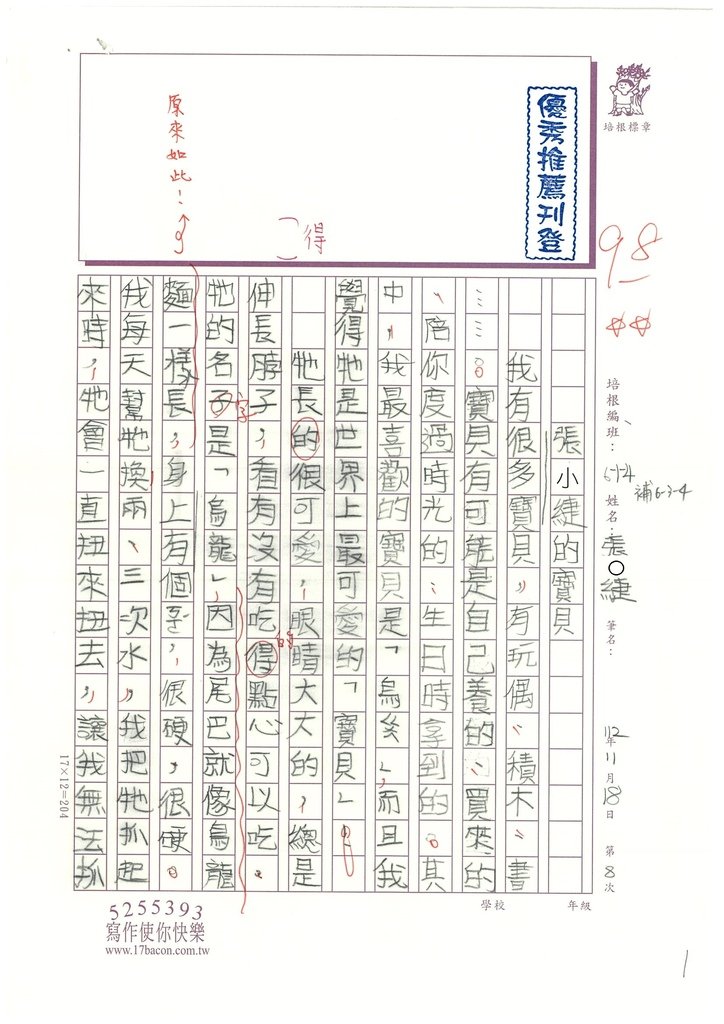 培根標章
優秀推薦刊登
原來如此！
得
98
培根編班：
5-1-4
補6-3-4
姓名：張○緁
筆名：
112年11月18日
第8次
張小緁的寶貝
我有很多寶貝，有玩偶、積木、書
……。寶貝有可能是自己養的、買來的
、陪你度過時光的、生日時拿到的。其
中，我最喜歡的寶貝是「烏
」，而且我
覺得牠是世界上最可愛的「寶貝」。
牠長的很可愛，眼睛大大的，總是
伸長脖子，看有沒有吃得點心可以吃。
的
牠的名子是「烏龍」，因為尾巴就像烏龍
字
麵一樣長，身上有個
，很硬，很硬。
我每天幫牠換兩、三次水，我把牠抓起
來時，牠會一直扭來扭去，讓我無法抓
17×12=204
學校
年級
5255393
寫作使你快樂
www.17bacon.com.tw
1